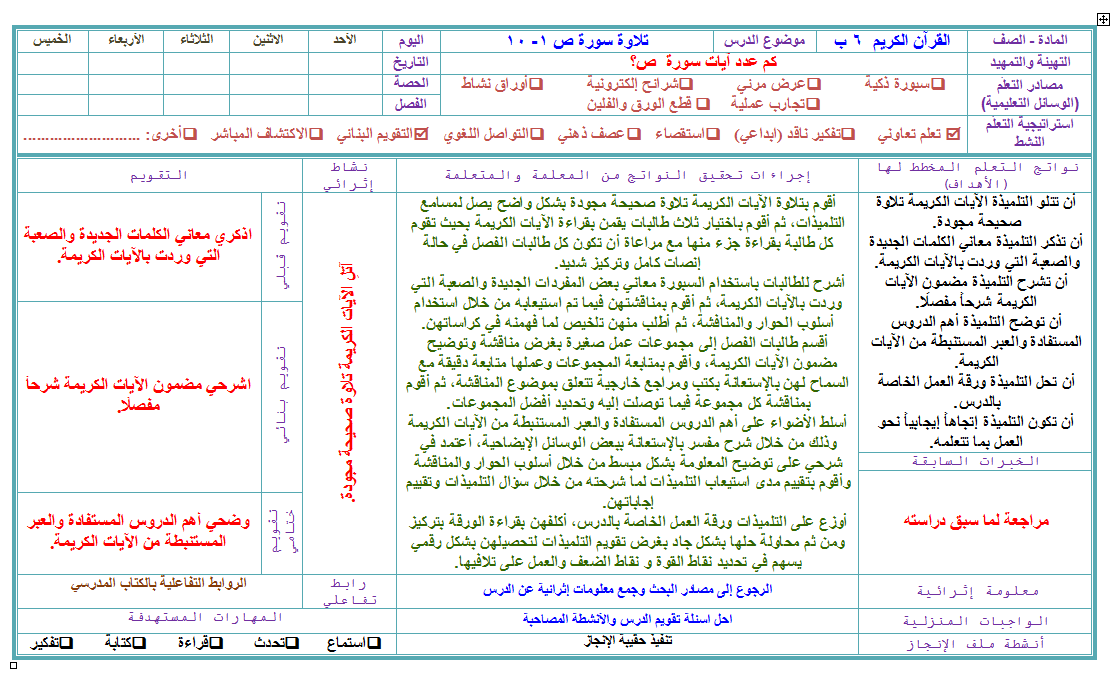 المادة - الصف القرآن الكريم ٦ ب موضوع الدرس تلاوة سورة ص ١- ١٠ اليوم الأحد الاثنين الثلاثاء الأربعاء الخميس
التهيئة والتمهيد كم عدد آيات سورة ص؟ التاريخ
مصادر التعلم
(الوسائل التعليمية)
❑سبورة ذكية ❑عرض مرئي ❑شرائح إلكترونية ❑أوراق نشاط
❑تجارب عملية ❑ قطع الورق والفلين
الحصة
الفصل
استراتيجية التعلم
النشط
☑ تعلم تعاوني ❑تفكير ناقد (ابداعي) ❑استقصاء ❑عصف ذهني ❑التواصل اللغوي ☑التقويم البنائي ❑الاكتشاف المباشر ❑أخرى: ...........................
نواتج التعلم المخطط لها
(الأهداف)
إجراءات تحقيق النواتج من المعلمة والمتعلمة
نشاط
إثرائي
التقويم
أن تتلو التلميذة الآيات الكريمة تلاوة
صحيحة مجودة.
أن تذكر التلميذة معاني الكلمات الجديدة
والصعبة التي وردت بالآيات الكريمة.
أن تشرح التلميذة مضمون الآيات
الكريمة شرحاً مفصلًا.
أن توضح التلميذة أهم الدروس
المستفادة والعبر المستنبطة من الآيات
الكريمة.
أن تحل التلميذة ورقة العمل الخاصة
بالدرس.
أن تكون التلميذة إتجاهاً إيجابياً نحو
العمل بما تتعلمه.
الخبرات السابقة
مراجعة لما سبق دراسته
أقوم بتلاوة الآيات الكريمة تلاوة صحيحة مجودة بشكل واضح يصل لمسامع
التلميذات، ثم أقوم باختيار ثلاث طالبات يقمن بقراءة الآيات الكريمة بحيث تقوم
كل طالبة بقراءة جزء منها مع مراعاة أن تكون كل طالبات الفصل في حالة
إنصات كامل وتركيز شديد.
أشرح للطالبات باستخدام السبورة معاني بعض المفردات الجديدة والصعبة التي
وردت بالآيات الكريمة، ثم أقوم بمناقشتهن فيما تم استيعابه من خلال استخدام
أسلوب الحوار والمناقشة، ثم أطلب منهن تلخيص لما فهمنه في كراساتهن.
أقسم طالبات الفصل إلى مجموعات عمل صغيرة بغرض مناقشة وتوضيح
مضمون الآيات الكريمة، وأقوم بمتابعة المجموعات وعملها متابعة دقيقة مع
السماح لهن بالإستعانة بكتب ومراجع خارجية تتعلق بموضوع المناقشة، ثم أقوم
بمناقشة كل مجموعة فيما توصلت إليه وتحديد أفضل المجموعات.
أسلط الأضواء على أهم الدروس المستفادة والعبر المستنبطة من الآيات الكريمة
وذلك من خلال شرح مفسر بالإستعانة ببعض الوسائل الإيضاحية، أعتمد في
شرحي على توضيح المعلومة بشكل مبسط من خلال أسلوب الحوار والمناقشة
وأقوم بتقييم مدى استيعاب التلميذات لما شرحته من خلال سؤال التلميذات وتقييم
إجاباتهن.
أوزع على التلميذات ورقة العمل الخاصة بالدرس، أكلفهن بقراءة الورقة بتركيز
ومن ثم محاولة حلها بشكل جاد بغرض تقويم التلميذات لتحصيلهن بشكل رقمي
يسهم في تحديد نقاط القوة و نقاط الضعف والعمل على تلافيها.
اتل الآيات الكريمة تلاوة صحيحة مجودة.
تقويم قبلي
اذكري معاني الكلمات الجديدة والصعبة
التي وردت بالآيات الكريمة.
تقويم بنائي
اشرحي مضمون الآيات الكريمة شرحاً
مفصلًا.
تقويم
ختامي
وضحي أهم الدروس المستفادة والعبر
المستنبطة من الآيات الكريمة.
معلومة إثرائية الرجوع إلى مصادر البحث وجمع معلومات إثرائية عن الدرس
رابط
تفاعلي
الروابط التفاعلية بالكتاب المدرسي
الواجبات المنزلية احل اسئلة تقويم الدرس والأنشطة المصاحبة المهارات المستهدفة
أنشطة ملف الإنجاز تنفيذ حقيبة الإنجاز ❑استماع ❑تحدث ❑قراءة ❑كتابة ❑تفكير